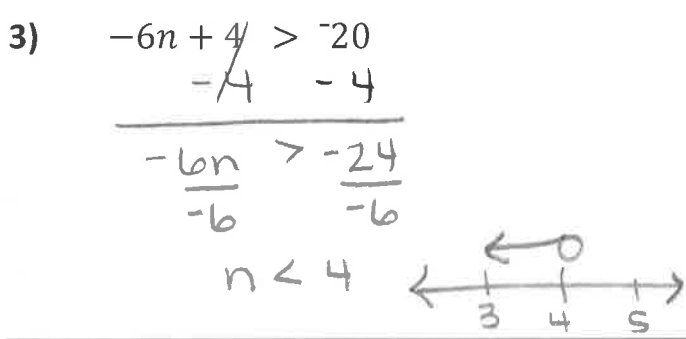 3) −6n + 4 > ⁻20
-4 - 4
-6n > -24
-6 -6
n < 4
3 4 5